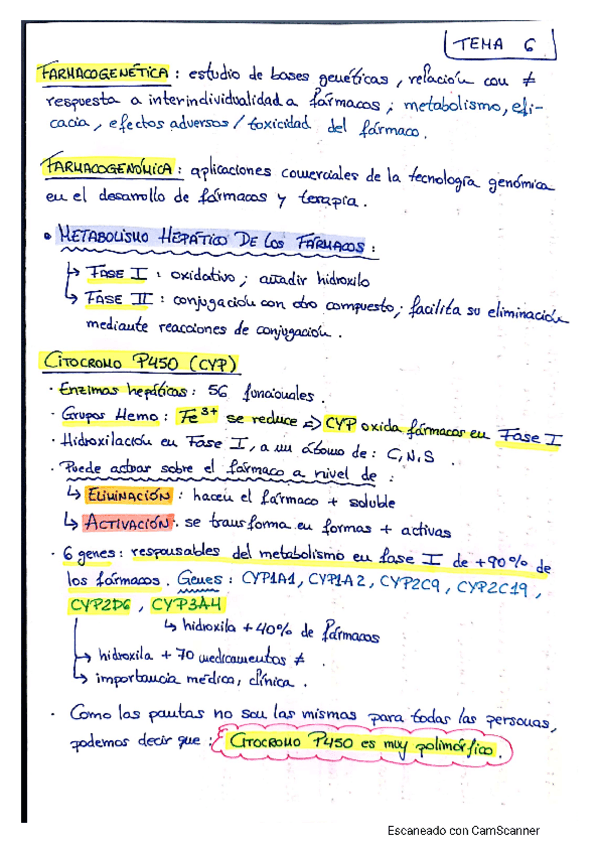 TEMA 6
FARMACOGENÉTICA: estudio de bases genéticas, relación con ≠
respuesta a interindividualidad a fármacos; metabolismo, efi-
cacia, efectos adversos/toxicidad del fármaco.
FARMACOGENÓMICA: aplicaciones comerciales de la tecnología genómica
en el desarrollo de fármacos y terapia.
• METABOLISMO HEPÁTICO DE LOS FÁRMACOS:
↳ FASE I: oxidativo; añadir hidroxilo
↳ FASE II: conjugación con otro compuesto; facilita su eliminación
mediante reacciones de conjugación.
CITOCROMO P450 (CYP)
· Enzimas hepáticas: 56 funcionales.
· Grupos Hemo: Fe³⁺ se reduce => CYP oxida fármacos en Fase I
· Hidroxilación en Fase I, a un átomo de: C, N, S.
· Puede actuar sobre el fármaco a nivel de:
↳ ELIMINACIÓN: hacen el fármaco + soluble
↳ ACTIVACIÓN: se transforma en formas + activas
· 6 genes: responsables del metabolismo en fase I de +90% de
los fármacos. Genes: CYP1A1, CYP1A2, CYP2C9, CYP2C19,
CYP2D6, CYP3A4
↳ hidroxila +40% de fármacos
↳ hidroxila +70 medicamentos ≠.
↳ importancia médica, clínica.
· Como las pautas no son las mismas para todas las personas,
podemos decir que: CITOCROMO P450 es muy polimórfico.
Escaneado con CamScanner